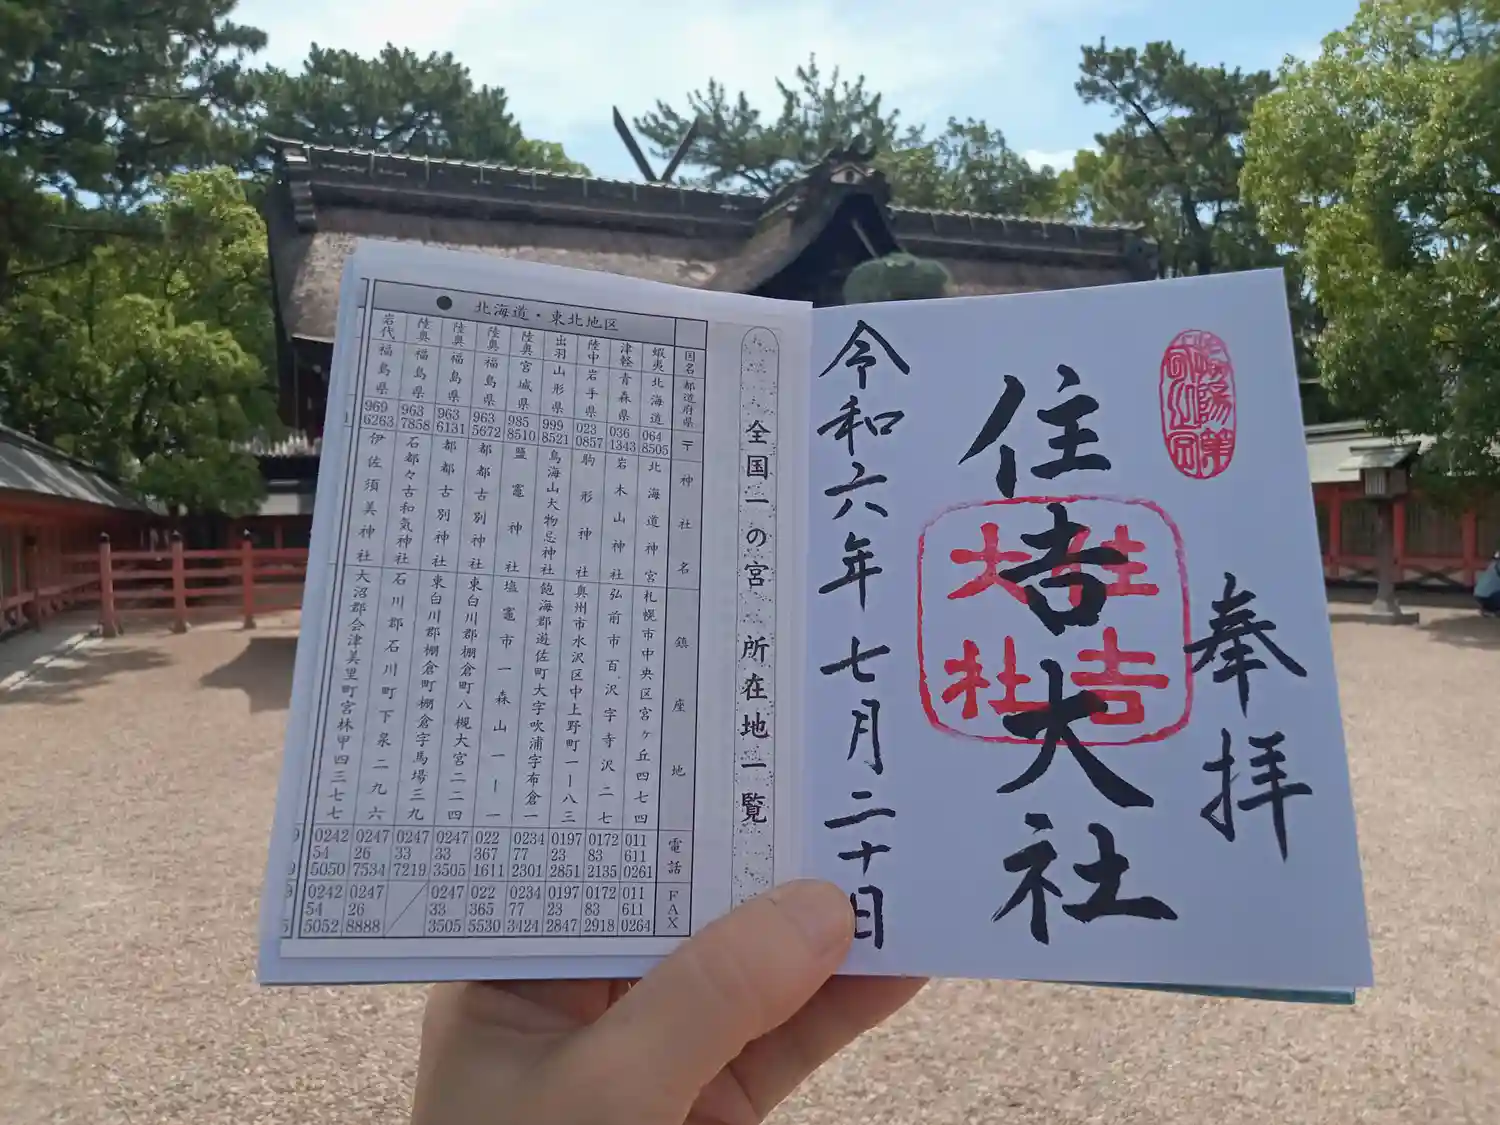 奉拝
住吉大社
住吉
大社
令和六年七月二十日
全国一の宮 所在地一覧
●北海道・東北地区
国名 都道府県 〒 神社名 鎮座地 電話 FAX
蝦夷 北海道 064 8505 北海道神宮 札幌市中央区宮ヶ丘四七四 011 611 0261 011 611 0264
津軽 青森県 036 1343 岩木山神社 弘前市百沢字寺沢二七 0172 83 2135 0172 83 2918
陸中 岩手県 023 0857 駒形神社 奥州市水沢区中上野町一ー八三 0197 23 2851 0197 23 2847
出羽 山形県 999 8521 鳥海山大物忌神社 飽海郡遊佐町大字吹浦字布倉一 0234 77 2301 0234 77 3424
陸奥 宮城県 985 8510 鹽竈神社 塩竈市一森山一ー一 022 367 1611 022 365 5530
陸奥 福島県 963 5672 都都古別神社 東白川郡棚倉町八槻大宮二二四 0247 33 3505 0247 33 3505
陸奥 福島県 963 6131 都都古別神社 東白川郡棚倉町棚倉字馬場三九 0247 33 7219
陸奥 福島県 963 7858 石都々古和気神社 石川郡石川町下泉二九六 0247 26 7534 0247 26 8888
岩代 福島県 969 6263 伊佐須美神社 大沼郡会津美里町宮林甲四三七七 0242 54 5050 0242 54 5052